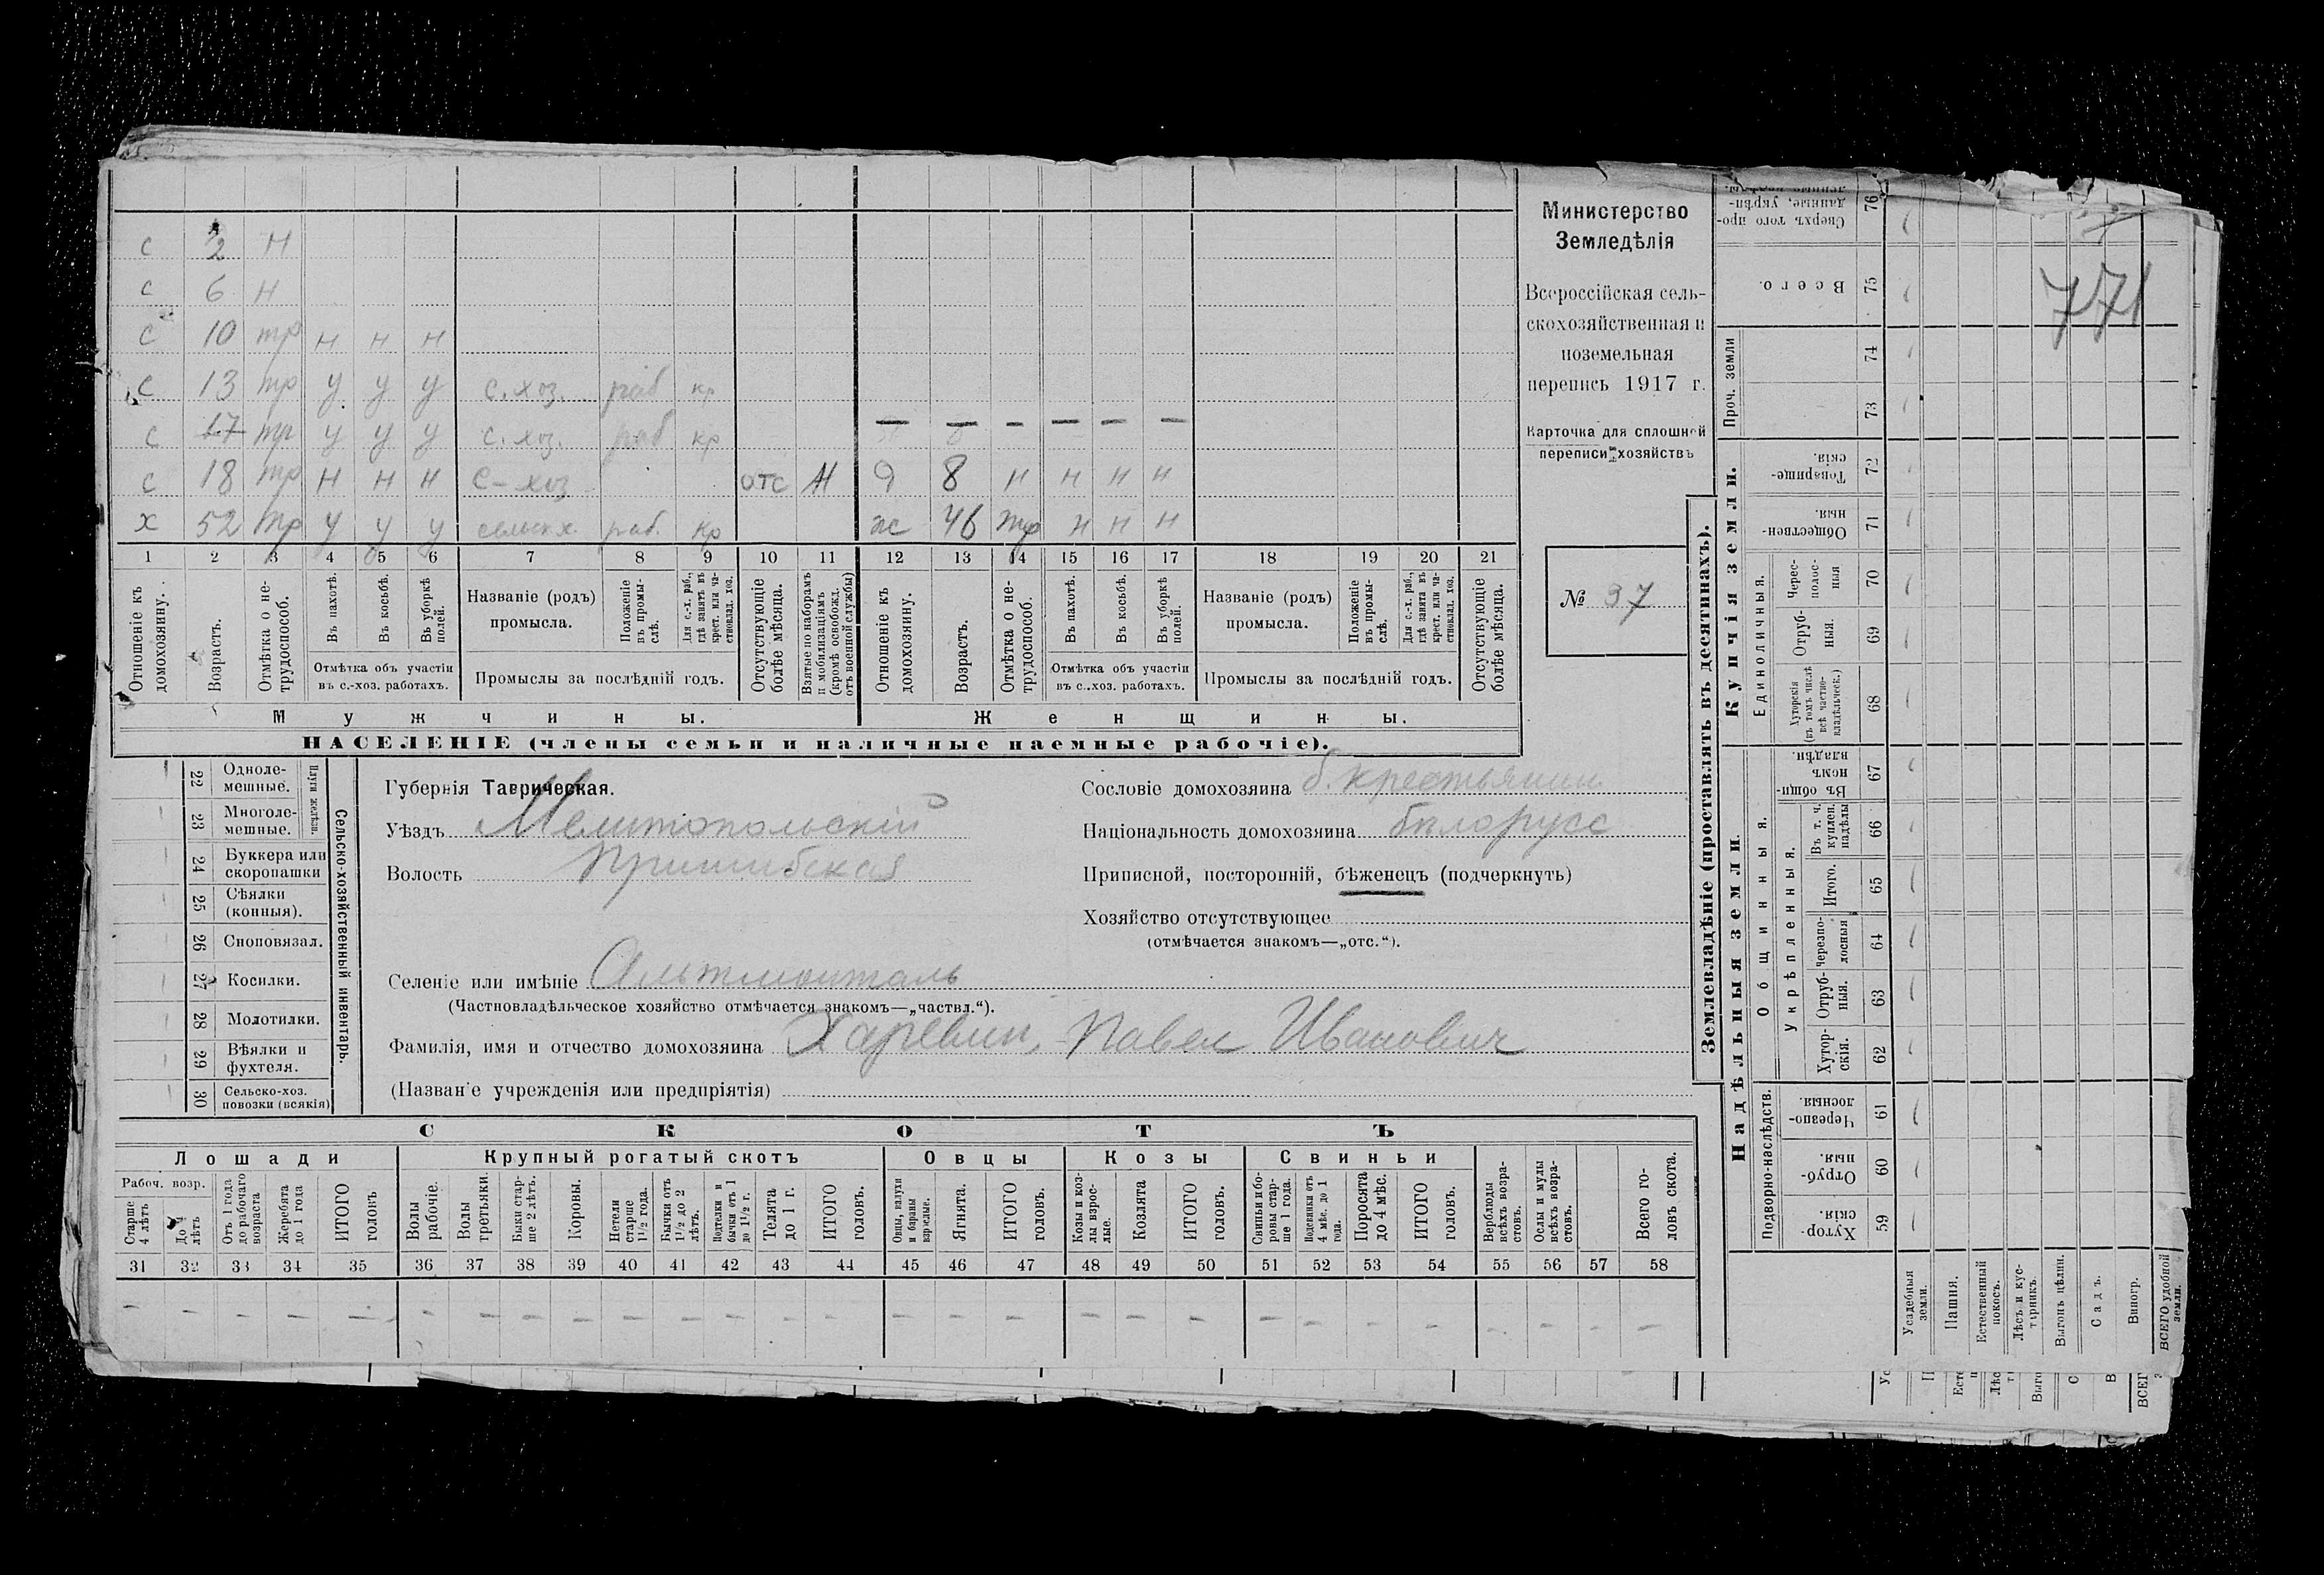 с 2 н
с 6 н
с 10 тр н н н
с 13 тр у у у с.хоз. раб кр
с 17 тр у у у с.хоз. раб кр — — — — — —
с 18 тр н н н с-хоз отс Н д 8 н н н н
х 52 тр у у у сельск.х. раб. кр ж 46 тр н н н
1 2 3 4 5 6 7 8 9 10 11 12 13 14 15 16 17 18 19 20 21
Отношеніе къ домохозяину.
Возрастъ.
Отмѣтка о не-трудоспособ.
Въ пахотѣ.
Въ косьбѣ.
Въ уборкѣ полей.
Отмѣтка объ участіи
въ с.-хоз. работахъ.
Названіе (родъ)
промысла.
Положеніе въ промы-слѣ.
Для с.-х. раб., гдѣ занятъ въ крест. или ча-стновлад. хоз.
Промыслы за послѣдній годъ.
Отсутствующіе болѣе мѣсяца.
Взятые по наборамъ и мобилизаціямъ (кромѣ освобожд. отъ военной службы)
Отношеніе къ домохозяину.
Возрастъ.
Отмѣтка о не-трудоспособ.
Въ пахотѣ.
Въ косьбѣ.
Въ уборкѣ полей.
Отмѣтка объ участіи
въ с.-хоз. работахъ.
Названіе (родъ)
промысла.
Положеніе въ промы-слѣ.
Для с.-х. раб., гдѣ занята въ крест. или ча-стновлад. хоз.
Промыслы за послѣдній годъ.
Отсутствующіе болѣе мѣсяца.
Мужчины.
Женщины.
НАСЕЛЕНІЕ (члены семьи и наличные наемные рабочіе).
Министерство
Земледѣлія
Всероссійская сель-
скохозяйственная и
поземельная
перепись 1917 г.
Карточка для сплошной
переписи хозяйствъ
№ 37
Сельско-хозяйственный инвентарь.
Плуги желѣзн.
22 Одноле-
мешные.
23 Многоле-
мешные.
24 Буккера или
скоропашки
25 Сѣялки
(конныя).
26 Сноповязал.
27 Косилки.
28 Молотилки.
29 Вѣялки и
фухтеля.
30 Сельско-хоз.
повозки (всякія)
Губернія Таврическая.
Уѣздъ Мелитопольскій
Волость Пришибская
Сословіе домохозяина б. крестьянин
Національность домохозяина бѣлорусс
Приписной, посторонній, бѣженецъ (подчеркнуть)
Хозяйство отсутствующее
(отмѣчается знакомъ—„отс.“).
Селеніе или имѣніе Альтмонталь
(Частновладѣльческое хозяйство отмѣчается знакомъ—„частвл.“).
Фамилія, имя и отчество домохозяина Харевич, Павел Иванович
(Названіе учрежденія или предпріятія)
СКОТЪ
Лошади
Крупный рогатый скотъ
Овцы
Козы
Свиньи
Рабоч. возр.
Старше 4 лѣтъ
До 4 лѣтъ
Отъ 1 года до рабочаго возраста
Жеребята до 1 года
ИТОГО головъ
Волы рабочіе.
Волы третьяки.
Быки стар-ше 2 лѣтъ.
Коровы.
Нетели старше 1½ года.
Бычки отъ 1½ до 2 лѣтъ.
Подтелки и бычки отъ 1 до 1½ г.
Телята до 1 г.
ИТОГО головъ.
Овцы, валухи и бараны взрослые.
Ягнята.
ИТОГО головъ.
Козы и коз-лы взрос-лые.
Козлята
ИТОГО головъ.
Свиньи и бо-ровы стар-ше 1 года.
Подсвинки отъ 4 мѣс. до 1 года.
Поросята до 4 мѣс.
ИТОГО головъ.
Верблюды всѣхъ возра-стовъ.
Ослы и мулы всѣхъ возра-стовъ.
Всего го-ловъ скота.
31 32 33 34 35 36 37 38 39 40 41 42 43 44 45 46 47 48 49 50 51 52 53 54 55 56 57 58
— — — — — — — — — — — — — — — — — — — — — — — — — — — —
Землевладѣніе (проставлять въ десятинахъ).
Купчія земли.
Надѣльныя земли
Сверхъ того про-данные, укрѣп-ленные надѣлы. 76
Всего. 75
Проч. земли
74
73
Товарище-скія. 72
Обществен-ныя. 71
Единоличныя.
Черес-полос-ныя 70
Отруб-ныя. 69
Хуторскія (въ томъ числѣ всѣ частно-владѣльческ.) 68
Общинныя.
Въ общин-номъ владѣн. 67
Укрѣпленныя.
Въ т. ч. куплен. надѣлы 66
Итого. 65
Черезпо-лосныя 64
Отруб-ныя. 63
Хутор-скія. 62
Подворно-наслѣдств.
Черезпо-лосныя. 61
Отруб-ныя. 60
Хутор-скія. 59
Усадебныя земли.
Пашня.
Естественный покосъ.
Лѣсъ и кус-тарникъ.
Выгонъ цѣлин.
Садъ.
Виногр.
ВСЕГО удобной земли.
771